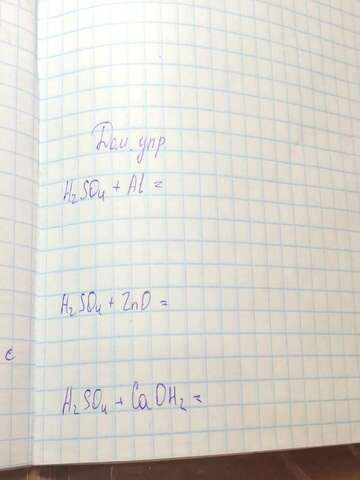 Дом. упр
H₂SO₄ + Al =
H₂SO₄ + ZnO =
с
H₂SO₄ + CaOH₂ =